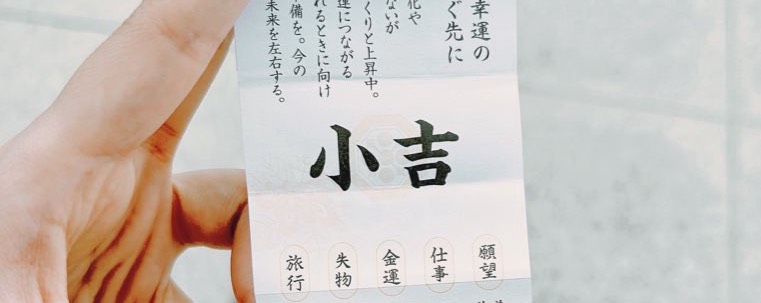 幸運の
ぐ先に
化や
ないが
くりと上昇中。
運につながる
れるときに向け
備を。今の
未来を左右する。
小吉
願望
仕事
金運
失物
旅行